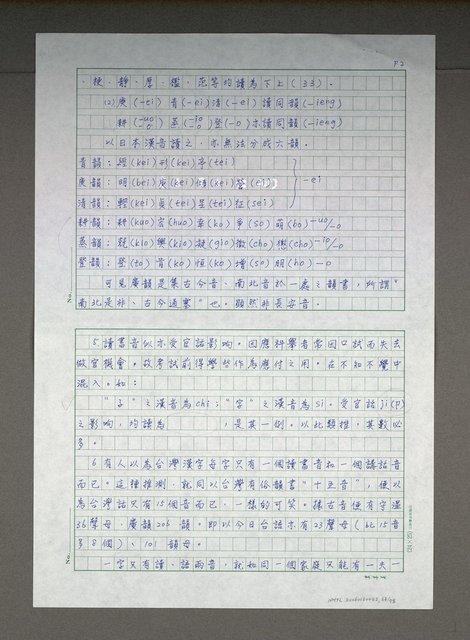 P2
、梗、靜、厚、鑑、范等均讀為下上(33)。
(2)庚(-ei)青(-ei)清(-ei)讀同韻(-ieng)
耕(-uo/-o)蒸(-io/-o)登(-o)亦讀同韻(-ieng)
以日本漢音讀之,亦無法分成六韻。
青韻:經(kei)刑(kei)亭(tei)
庚韻:明(bei)庚(kei)傾(kei)營(ei) }-ei
清韻:輕(kei)貞(tei)呈(tei)征(sei)
耕韻:耕(kuo)宏(huo)幸(ko)爭(so)萌(bo)-uo/-o
蒸韻:兢(kio)興(kio)凝(gio)徵(cho)懲(cho)-io/-o
登韻:登(to)肯(ko)恒(ko)增(so)朋(ho)-o
可見廣韻是集古今音、南北音於一處之韻書,所謂"
南北是非、古今通塞"也。顯然非長安音。
No.
5讀書音似亦受官話影响。因應科舉者常因口試而失去
做官機會。故考試前得學些作為應付之用。在不知不覺中
混入。如:
"子"之漢音為chi;"字"之漢音為si。受官話ji(P)
之影响,均讀為 ,是其一例。以此類推,其數必
多。
6有人以為台灣漢字每字只有一個讀書音和一個講話音
而已。這種推測,就同以台灣有俗韻書"十五音",便以
為台灣話只有15個音而已,一樣的可笑。據古音便有守溫
36聲母,廣韻206韻。即以今日台語亦有23聲母(比15音
多8個)、101韻母。
一字只有讀、語兩音,就如同一個家庭只能有一夫一
No.
(24×25)